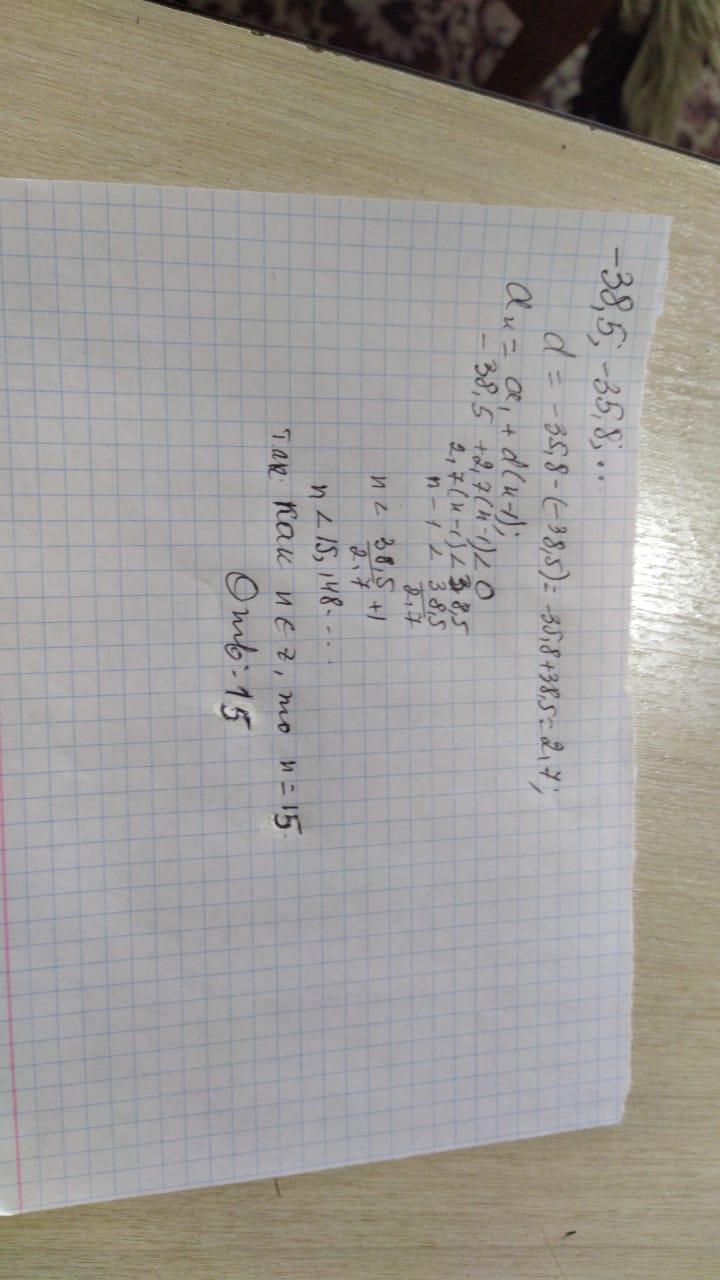 -38,5; -35,8; ...
d = -35,8-(-38,5)= -35,8+38,5=2,7;
aₙ= a₁ + d(n-1);
-38,5 +2,7(n-1)<0
2,7(n-1)<38,5
n-1 < 38,5/2,7
n < 38,5/2,7 +1
n<15,148....
так как n∈z, то n=15.
Отв: 15